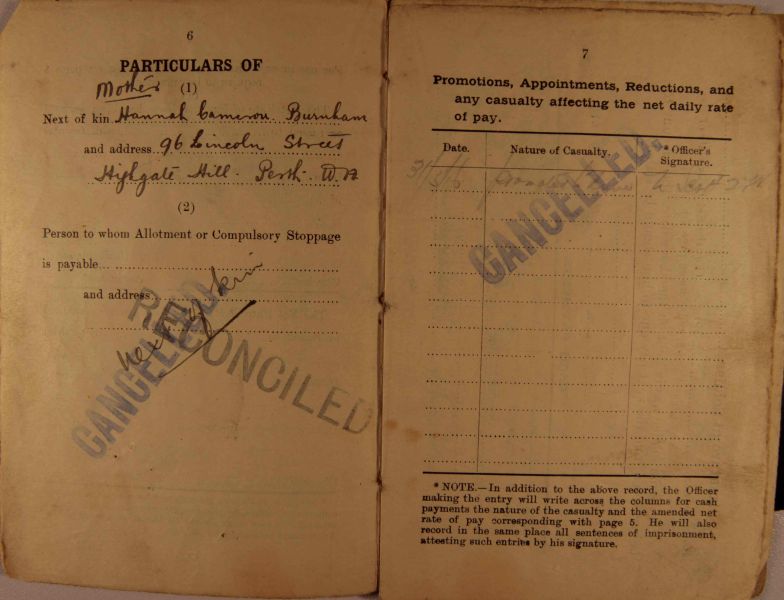 6
PARTICULARS OF
Mother
(1)
Next of kin Hannah Cameron Burnham
and address 96 Lincoln Street
Highgate Hill. Perth. W.A
(2)
Person to whom Allotment or Compulsory Stoppage
is payable
and address
next of kin
CANCELLED
RECONCILED
7
Promotions, Appointments, Reductions, and
any casualty affecting the net daily rate
of pay.
Date. Nature of Casualty. * Officer's Signature.
CANCELLED.
* NOTE.—In addition to the above record, the Officer
making the entry will write across the columns for cash
payments the nature of the casualty and the amended net
rate of pay corresponding with page 5. He will also
record in the same place all sentences of imprisonment,
attesting such entries by his signature.